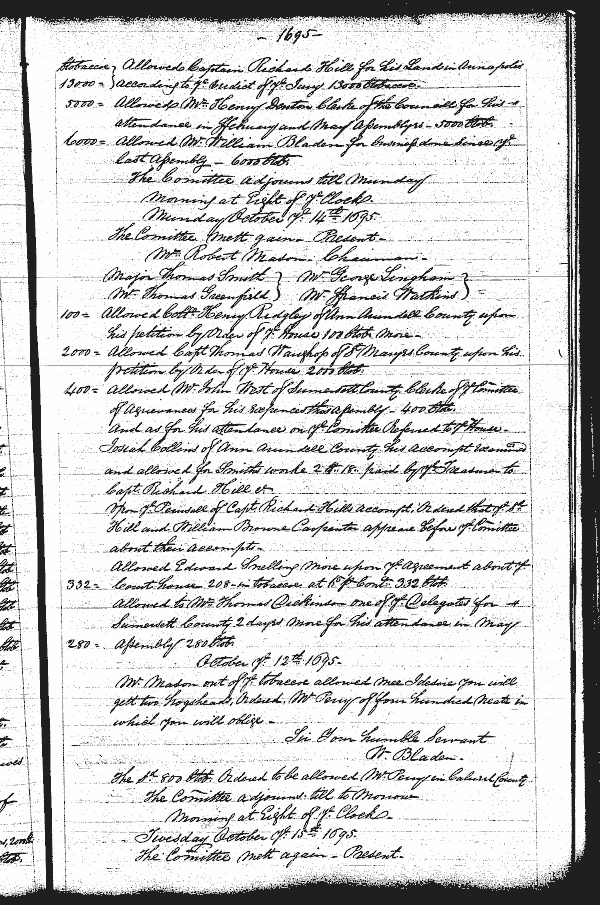 - 1695 -
tobacco } Allowed Captain Richard Hill for his Land in Annapolis
13000 = } according to ye. Verdict of ye. Jury 13000 tobacco.
5000 = Allowed Mr. Henry Denton Clerke of the Councill for his
attendance in ffebruary and May Assemblys - 5000 tob.
6000 = Allowed Mr. William Bladen for business done since ye.
last Assembly - 6000 tob.
The Comittee adjourns till Munday
Morning at Eight of ye. Clock.
Munday October ye. 14th. 1695.
The Comittee mett again - Present -
Mr. Robert Mason - Chairman -
Major Thomas Smith } Mr. George Lingham } =
Mr. Thomas Greenfield } Mr. ffrancis Watkins }
100 = Allowed Collo. Henry Ridgley of Ann Arundell County upon
his petition by Order of ye. House 100 tob. more -
2000 = Allowed Capt. Thomas Waughop of St. Marys County upon his
petition by Order of ye. House 2000 tob.
400 = Allowed Mr. John West of Sumersett County Clerke of ye. Comittee
of Agrievances for his expences this Assembly - 400 tob.
And as for his attendance on ye. Comittee Referred to ye. House -
Josiah Collins of Ann Arundell County his accompt Examined
and allowed for Smiths worke paid by ye. Treasurer to
Capt. Richard Hill &c.
Upon ye. Perusall of Capt. Richard Hills accompt. Ordered that ye. sd.
Hill and William Browne Carpenter appeare before ye. Comittee
about their accompts -
Allowed Edward Smelling more upon ye. Agreement about ye.
332 = Court house 208 in tobacco at Ct. 332 tob.
Allowed to Mr. Thomas Dickinson one of ye. Delegates for
Sumersett County 2 days more for his attendance in May
280 = Assembly 280 tob.
October ye. 12th. 1695 -
Mr. Mason out of ye. tobacco allowed mee I desire you will
gett two hogsheads, Ordered, Mr. Perry of four hundred Neate in
which you will oblige -
Sir Your humble Servant
W. Bladen -
The sd. 800 tob. Ordered to be allowed Mr. Perry in Calvert County
The Comittee adjourns till to Morrow
Morning at Eight of ye. Clock.
Tuesday October ye. 15th. 1695.
The Comittee mett again - Present -